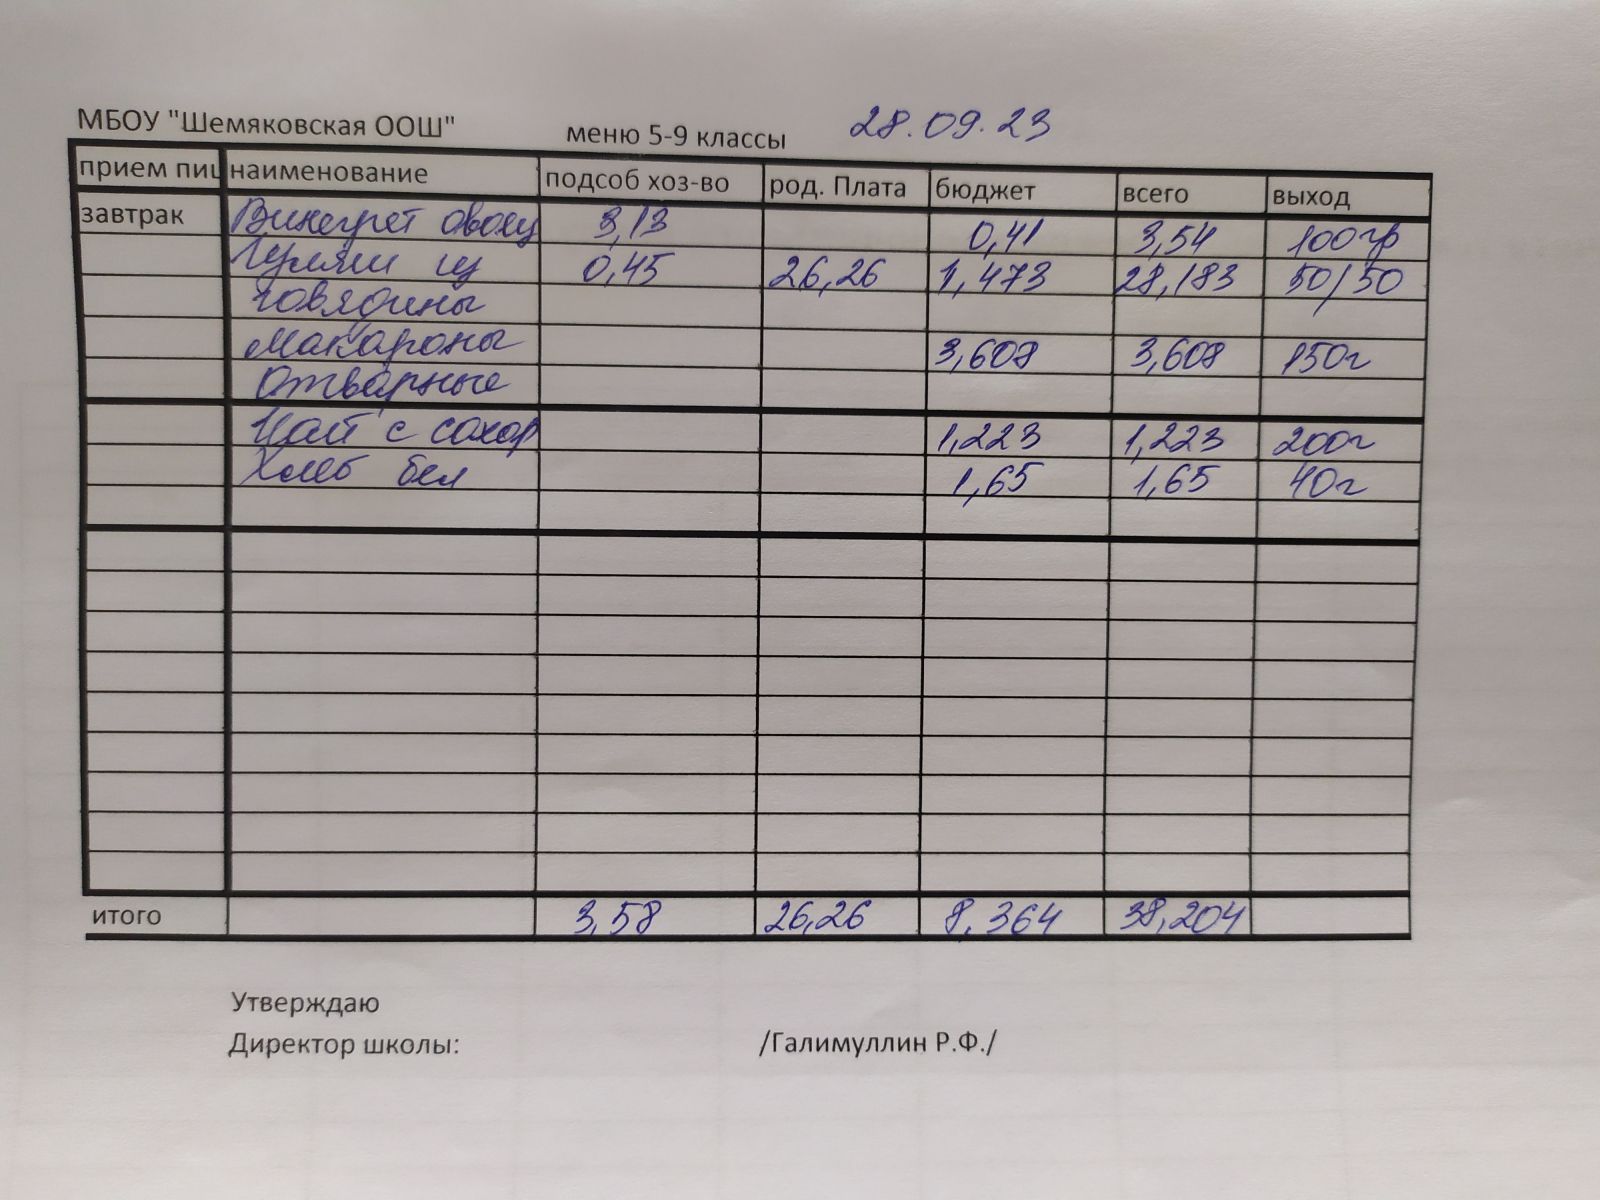 МБОУ "Шемяковская ООШ" меню 5-9 классы 28.09.23
прием пищ наименование подсоб хоз-во род. Плата бюджет всего выход
завтрак Винегрет овощ 3,13 0,41 3,54 100гр
Гуляш из 0,45 26,26 1,473 28,183 50/50
говядины
Макароны 3,608 3,608 150г
отварные
Чай с сахар 1,223 1,223 200г
Хлеб бел 1,65 1,65 40г
итого 3,58 26,26 8,364 38,204
Утверждаю
Директор школы: /Галимуллин Р.Ф./